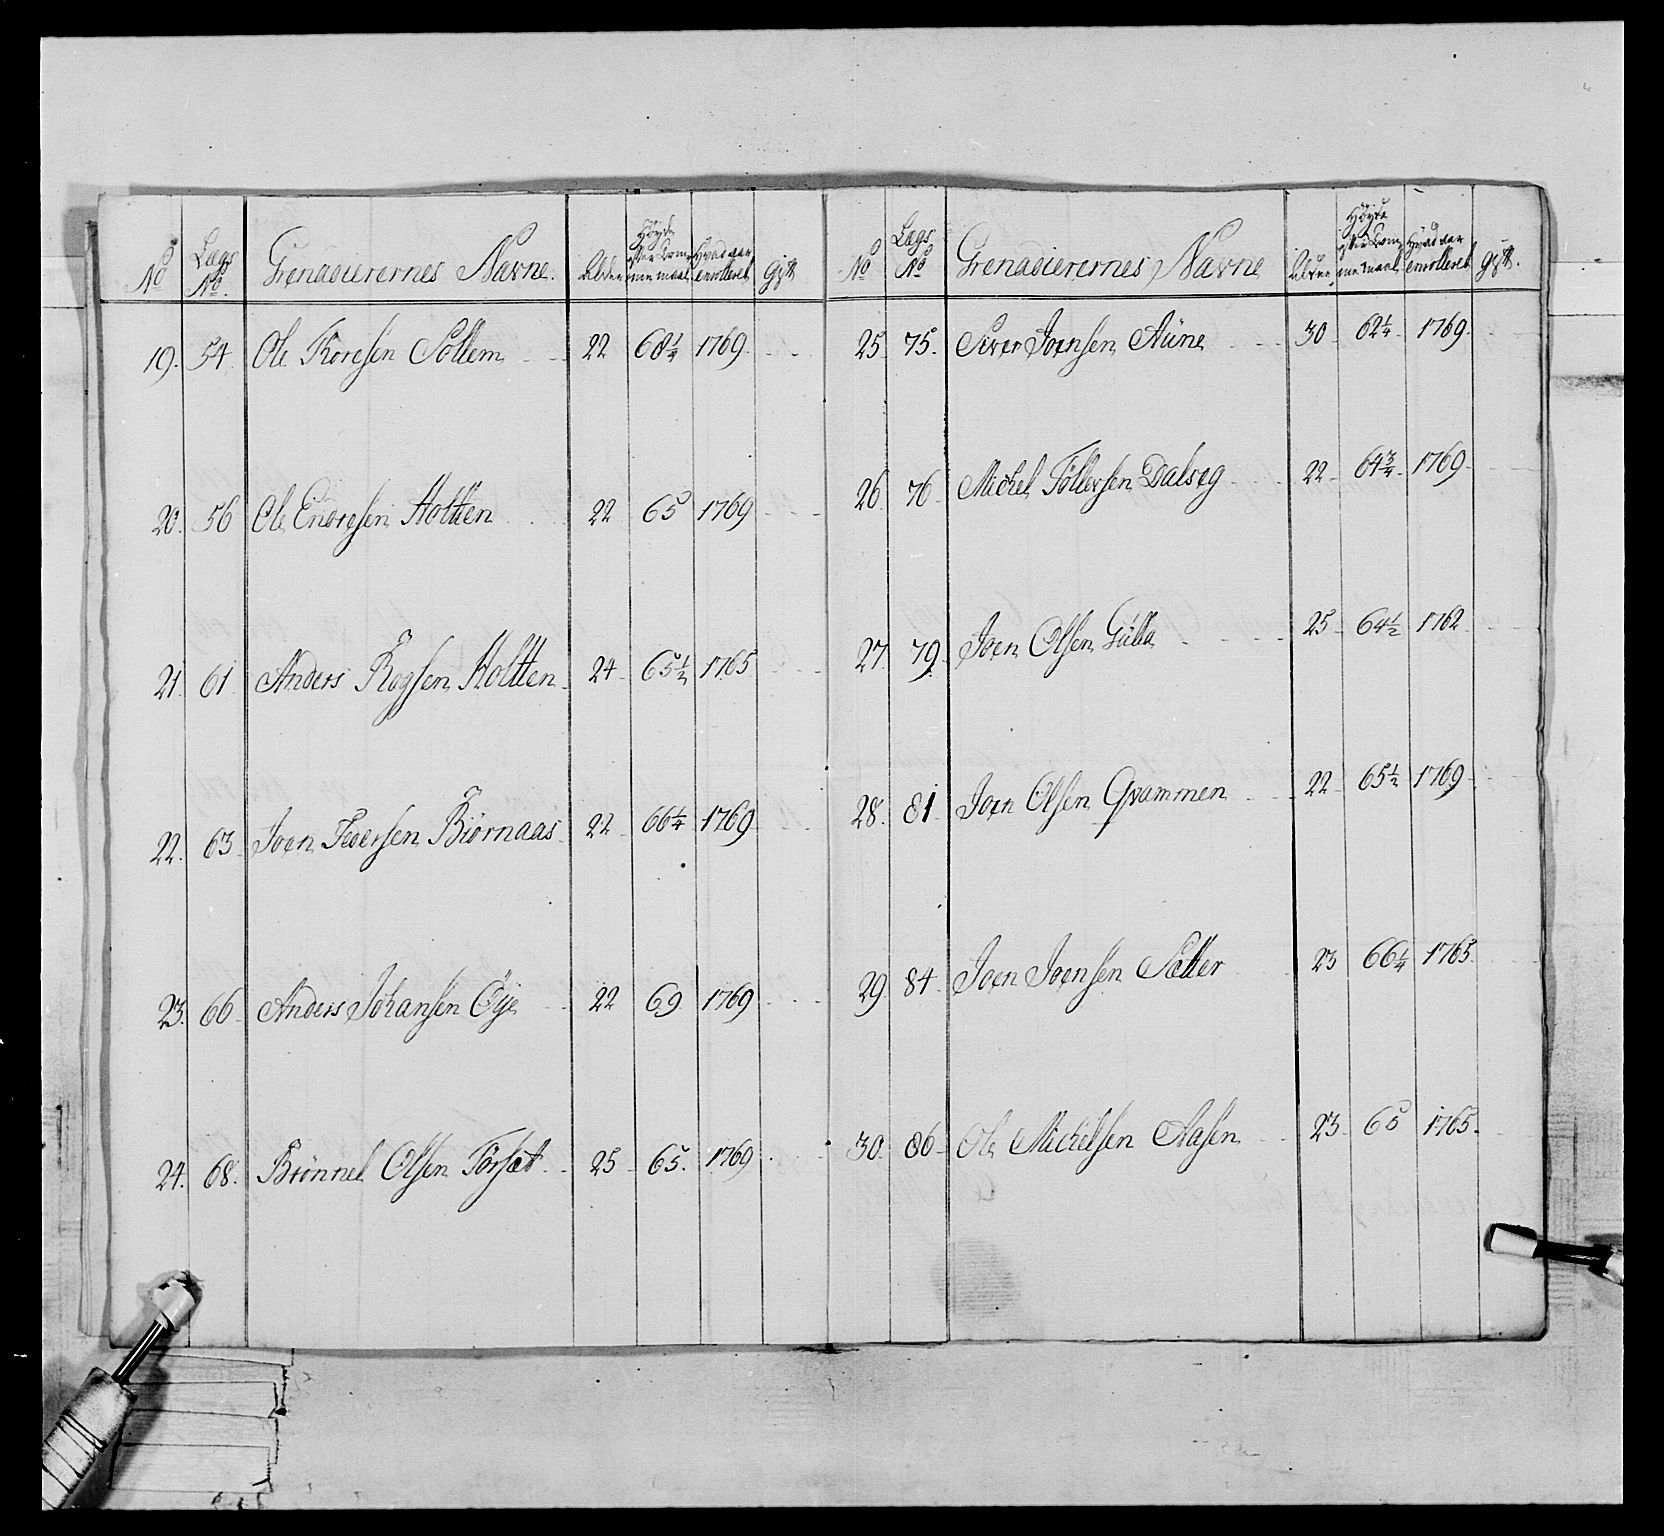 No Lægs No. Grenadierernes Navne. Alder Høyde efter Tommemaal Hvad aar enrolleret Gift
19. 54 Ole Thoresen Sollem 22 68 1/4 1769.
20. 56 Ole Endresen Holtten 22 65 1769
21 61 Anders Rogsen Holtten 24 65 1/2 1765
22. 63 Joen Pedersen Biørnaas 22 66 1/4 1769
23. 66 Anders Johansen Øye 22 69 1769
24. 68. Brønnel Olsen Førsæt 25 65. 1769
No Lægs No Grenadierernes Navne Alder Høyde efter Tommemaal Hvad aar enrolleret gift.
25 75. Siver Joensen Aüne 30 62 1/4 1769.
26 76 Michel Tøllersen Dalseg 22 64 3/4 1769
27 79 Joen Olsen Gülla 25 64 1/2 1762
28. 81 Joen Olsen Qvammen 22 65 1/2 1769
29 84 Joen Joensen Sætter 23 66 1/4 1765
30. 86 Ole Michelsen Aasen 23 65 1765.